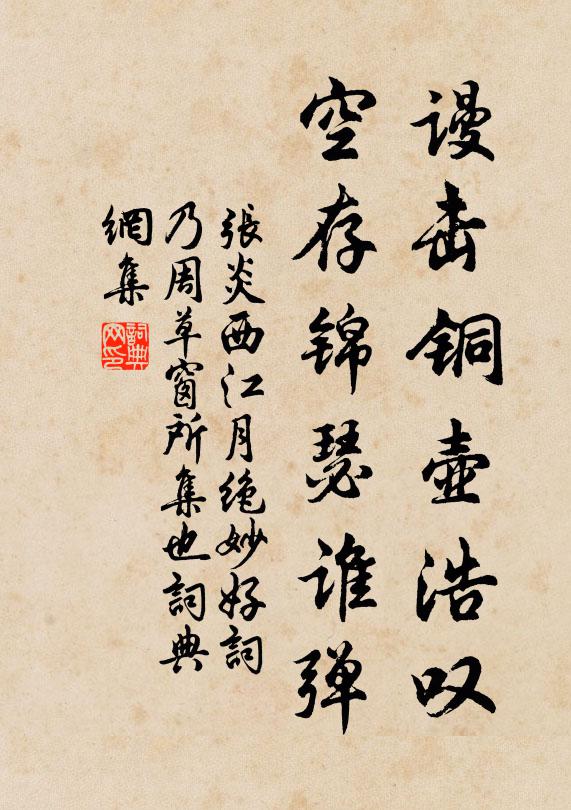 谩击铜壶浩叹
空存锦瑟谁弹
張炎西江月绝妙好詞
乃周草窗所集也詞典
網集
詞典
网印